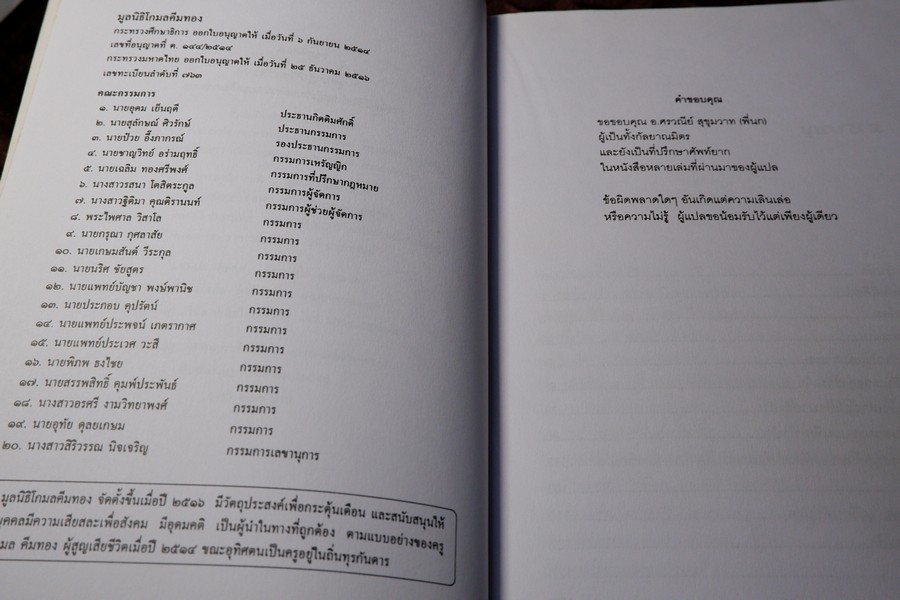 มูลนิธิโกมลคีมทอง
กระทรวงศึกษาธิการ ออกใบอนุญาตให้ เมื่อวันที่ ๖ กันยายน ๒๕๑๔
เลขที่อนุญาตที่ ต. ๑๔๔/๒๕๑๔
กระทรวงมหาดไทย ออกใบอนุญาตให้ เมื่อวันที่ ๒๕ ธันวาคม ๒๕๑๖
เลขทะเบียนลำดับที่ ๗๖๓
คณะกรรมการ
๑. นายอุดม เย็นฤดี ประธานกิตติมศักดิ์
๒. นายสุลักษณ์ ศิวรักษ์ ประธานกรรมการ
๓. นายป๋วย อึ๊งภากรณ์ รองประธานกรรมการ
๔. นายชาญวิทย์ อร่ามฤทธิ์ กรรมการเหรัญญิก
๕. นายเฉลิม ทองศรีพงศ์ กรรมการที่ปรึกษากฎหมาย
๖. นางสาวรสนา โตสิตระกูล กรรมการผู้จัดการ
๗. นางสาวฐิติมา คุณติรานนท์ กรรมการผู้ช่วยผู้จัดการ
๘. พระไพศาล วิสาโล กรรมการ
๙. นายกรุณา กุศลาสัย กรรมการ
๑๐. นายเกษมสันต์ วีระกุล กรรมการ
๑๑. นายนริศ ชัยสูตร กรรมการ
๑๒. นายแพทย์บัญชา พงษ์พานิช กรรมการ
๑๓. นายประกอบ คุปรัตน์ กรรมการ
๑๔. นายแพทย์ประพจน์ เภตรากาศ กรรมการ
๑๕. นายแพทย์ประเวศ วะสี กรรมการ
๑๖. นายพิภพ ธงไชย กรรมการ
๑๗. นายสรรพสิทธิ์ คุมพ์ประพันธ์ กรรมการ
๑๘. นางสาวอรศรี งามวิทยาพงศ์ กรรมการ
๑๙. นายอุทัย ดุลยเกษม กรรมการ
๒๐. นางสาวสิริวรรณ นิจเจริญ กรรมการเลขานุการ
มูลนิธิโกมลคีมทอง จัดตั้งขึ้นเมื่อปี ๒๕๑๖ มีวัตถุประสงค์เพื่อกระตุ้นเตือน และสนับสนุนให้
บุคคลมีความเสียสละเพื่อสังคม มีอุดมคติ เป็นผู้นำในทางที่ถูกต้อง ตามแบบอย่างของครู
มล คีมทอง ผู้สูญเสียชีวิตเมื่อปี ๒๕๑๔ ขณะอุทิศตนเป็นครูอยู่ในถิ่นทุรกันดาร
คำขอบคุณ
ขอขอบคุณ อ.ศรวณีย์ สุขุมวาท (พี่นก)
ผู้เป็นทั้งกัลยาณมิตร
และยังเป็นที่ปรึกษาศัพท์ยาก
ในหนังสือหลายเล่มที่ผ่านมาของผู้แปล
ข้อผิดพลาดใดๆ อันเกิดแต่ความเลินเล่อ
หรือความไม่รู้ ผู้แปลขอน้อมรับไว้แต่เพียงผู้เดียว